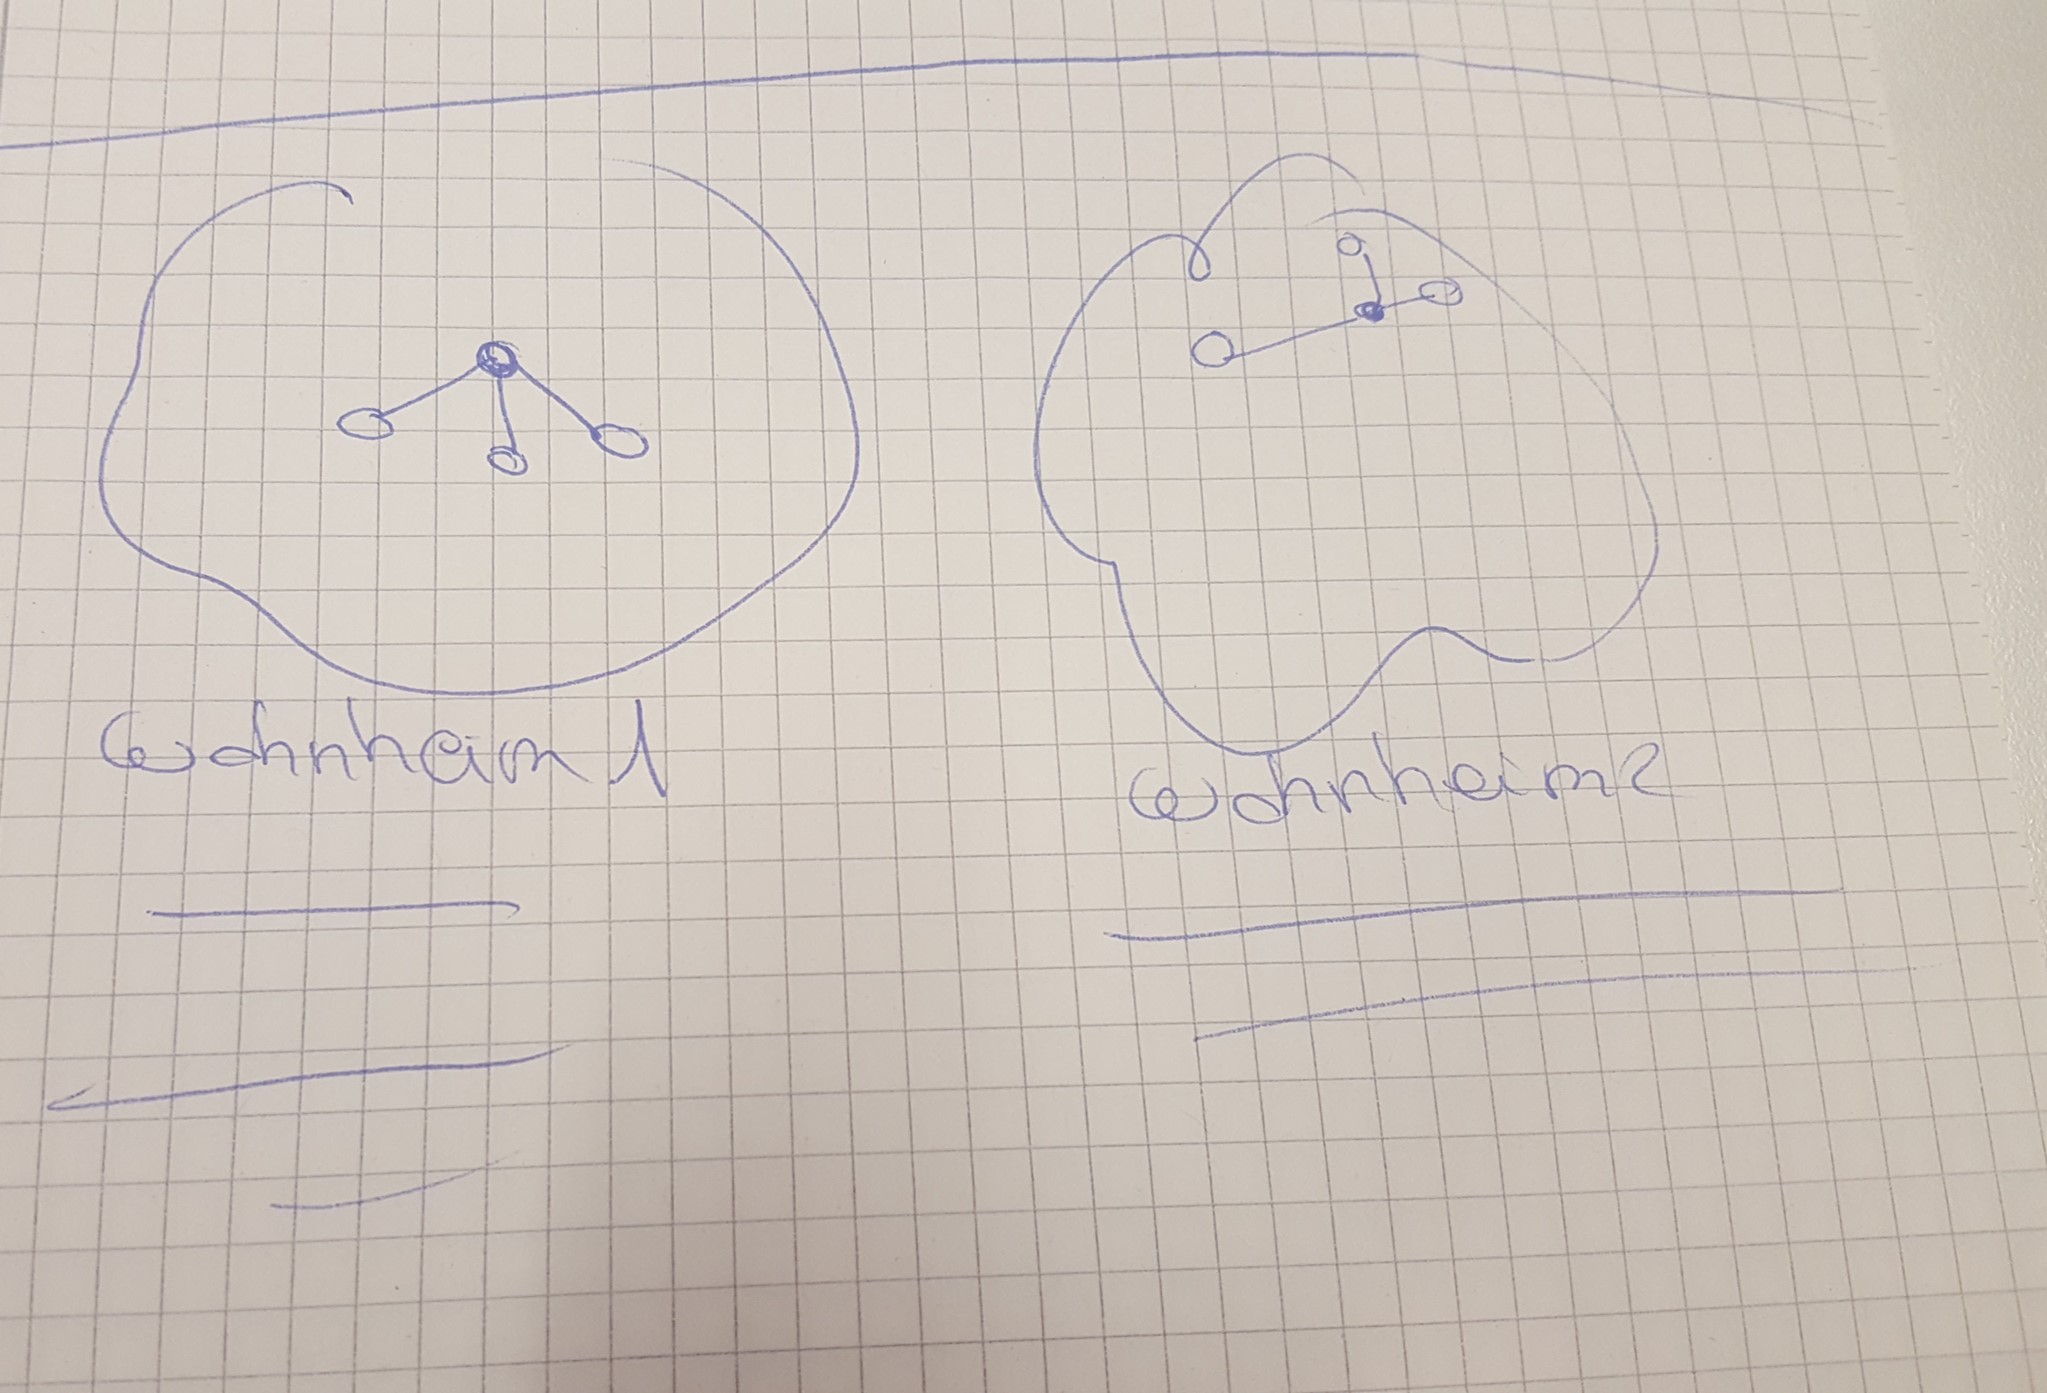 Wohnheim 1
Wohnheim 2